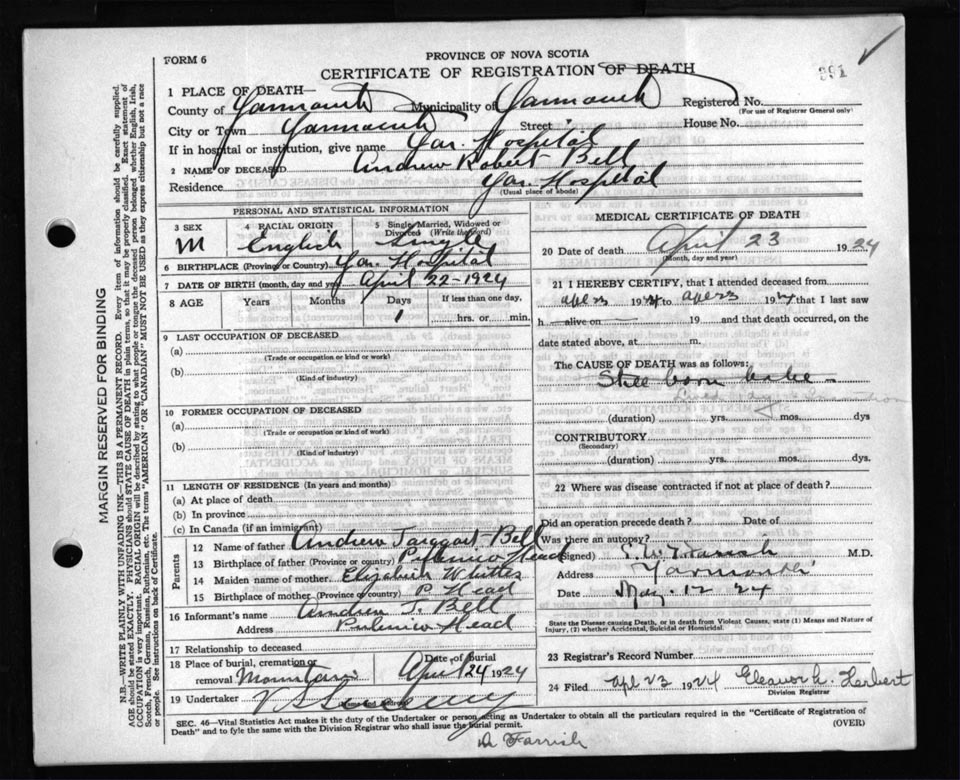 FORM 6
PROVINCE OF NOVA SCOTIA
CERTIFICATE OF REGISTRATION OF DEATH
391
1 PLACE OF DEATH—
County of Yarmouth Municipality of Yarmouth Registered No.
(For use of Registrar General only)
City or Town Yarmouth Street House No.
If in hospital or institution, give name Yar. Hospital
2 NAME OF DECEASED Andrew Robert Bell
Residence Yar. Hospital
(Usual place of abode)
MARGIN RESERVED FOR BINDING
N.B.—WRITE PLAINLY WITH UNFADING INK—THIS IS A PERMANENT RECORD. Every item of information should be carefully supplied.
AGE should be stated EXACTLY. PHYSICIANS should STATE CAUSE OF DEATH in plain terms, so that it may be properly classified. Exact statement of
OCCUPATION is very important. RACIAL ORIGIN will be described by stating to what people or tongue the deceased person belonged whether English, Irish,
Scotch, French, German, Russian, Ruthenian, etc. The terms "AMERICAN" or "CANADIAN" MUST NOT BE USED as they express citizenship but not a race
or people. See instructions on back of Certificate.
PERSONAL AND STATISTICAL INFORMATION
3 SEX 4 RACIAL ORIGIN 5 Single, Married, Widowed or
Divorced (Write the word)
M English Single
6 BIRTHPLACE (Province or Country) Yar. Hospital
7 DATE OF BIRTH (month, day and year) April 22-1924
8 AGE Years Months Days If less than one day,
1 hrs. or min.
9 LAST OCCUPATION OF DECEASED
(a)
(Trade or occupation or kind of work)
(b)
(Kind of industry)
10 FORMER OCCUPATION OF DECEASED
(a)
(Trade or occupation or kind of work)
(b)
(Kind of industry)
11 LENGTH OF RESIDENCE (In years and months)
(a) At place of death
(b) In province
(c) In Canada (if an immigrant)
Parents
12 Name of father Andrew Taggart Bell
13 Birthplace of father (Province or country) Pubnico Head
14 Maiden name of mother Elizabeth
15 Birthplace of mother (Province or country) P. Head
16 Informant's name Andrew T. Bell
Address Pubnico Head
17 Relationship to deceased
18 Place of burial, cremation or removal Mountain Date of burial April 24 1924
19 Undertaker
MEDICAL CERTIFICATE OF DEATH
20 Date of death April 23 1924
(Month, day and year)
21 I HEREBY CERTIFY, that I attended deceased from
Apr 23 1924 to Apr 23 1924 that I last saw
h — alive on — 19 and that death occurred, on the
date stated above, at m.
The CAUSE OF DEATH was as follows:
Still born babe —
(duration) yrs. mos. dys
CONTRIBUTORY
(Secondary)
(duration) yrs. mos. dys.
22 Where was disease contracted if not at place of death?
Did an operation precede death? Date of
Was there an autopsy?
(Signed) M.D.
Address Yarmouth
Date May 12 24
State the Disease causing Death, or in death from Violent Causes, state (1) Means and Nature of
Injury, (2) whether Accidental, Suicidal or Homicidal.
23 Registrar's Record Number
24 Filed Apr 23 1924 Eleanor L. Herbert
Division Registrar
SEC. 46—Vital Statistics Act makes it the duty of the Undertaker or person acting as Undertaker to obtain all the particulars required in the "Certificate of Registration of
Death" and to fyle the same with the Division Registrar who shall issue the burial permit. (OVER)
Dr Farrish